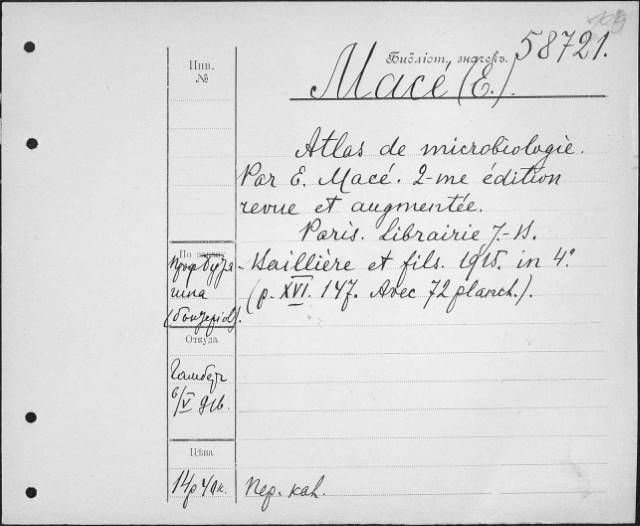 Инв.
№
Библіот. значокъ. 58721.
Macé (E.).
Atlas de microbiologie.
Par E. Macé. 2-me édition
revue et augmentée.
Paris. Librairie J.-B.
Baillière et fils. 1915. in 4°
(p. XVI. 147. Avec 72 planch.).
По
Откуда
6/V 916.
Цѣна
14р 40к.
Пер. кан.